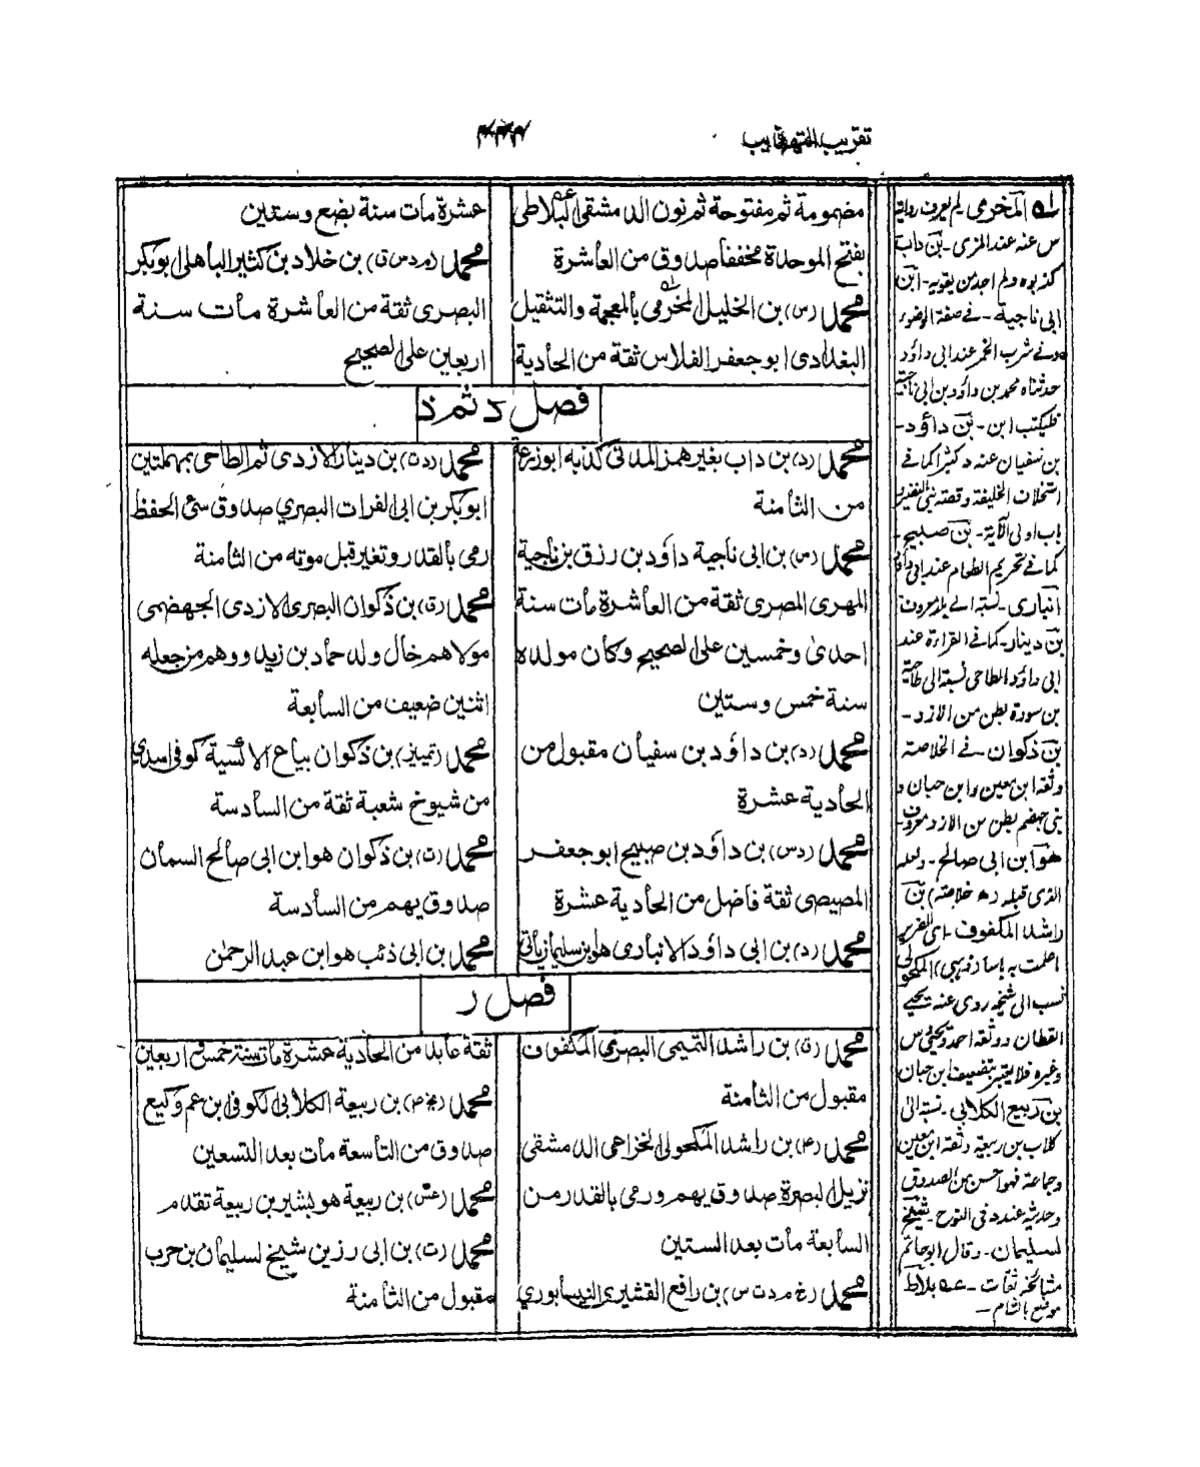 تقريب التهذيب
مضمومة ثم مفتوحة ثم نون الدمشقي البلاطي
بفتح الموحدة مخففا صدوق من العاشرة
محمد (س) بن الخليل المخرمي بالمعجمة والتثقيل
البغدادي ابوجعفر الفلاس ثقة من الحادية
عشرة مات سنة بضع وستين
محمد (م د س ق) بن خلاد بن كثير الباهلي ابوبكر
البصري ثقة من العاشرة مات سنة
اربعين على الصحيح
فصل د ثم ذ
محمد (د) بن داب بغير همز المدني كذبه ابوزرعة
من الثامنة
محمد (س) بن ابي ناجية داؤد بن رزق بن ناجية
المهري المصري ثقة من العاشرة مات سنة
احدى وخمسين على الصحيح وكان مولده
سنة خمس وستين
محمد (د) بن داؤد بن سفيان مقبول من
الحادية عشرة
محمد (د س) بن داؤد بن صبيح ابوجعفر
المصيصي ثقة فاضل من الحادية عشرة
محمد (د) بن ابي داؤد الانباري هو بن سليمان يأتي
محمد (د ت) بن دينار الازدي ثم الطاحي بمهملتين
ابوبكر بن ابي الفرات البصري صدوق سيئ الحفظ
رمي بالقدر وتغير قبل موته من الثامنة
محمد (ق) بن ذكوان البصري الازدي الجهضمي
مولاهم خال ولد حماد بن زيد ووهم من جعله
اثنين ضعيف من السابعة
محمد (تمييز) بن ذكوان بياع الاكسية كوفي اسدي
من شيوخ شعبة ثقة من السادسة
محمد (ت) بن ذكوان هو ابن ابي صالح السمان
صدوق يهم من السادسة
محمد بن ابي ذئب هو ابن عبد الرحمٰن
فصل ر
محمد (ق) بن راشد التميمي البصري المكفوف
مقبول من الثامنة
محمد (٤) بن راشد المكحولي الخزاعي الدمشقي
نزيل البصرة صدوق يهم ورمي بالقدر من
السابعة مات بعد الستين
محمد (خ م د ت س) بن رافع القشيري النيسابوري
ثقة عابد من الحادية عشرة مات سنة خمس واربعين
محمد بن ربيعة الكلابي الكوفي ابن عم وكيع
صدوق من التاسعة مات بعد التسعين
محمد (عس) بن ربيعة هو بشير بن ربيعة تقدم
محمد (ت) بن ابي رزين شيخ لسليمان بن حرب
مقبول من الثامنة
المخرمي لم يعرف رواية
س عنه عند المزي - بن داب
كذبوه ولم اجد من يقويه - ابن
ابي ناجية - في صفة الوضوء
وفي شرب الخمر عند ابي داؤد
حدثناه محمد بن داؤد بن ابي ناجية
فليكتب ابن - بن داؤد -
بن سفيان عنه د كثيرا كما في
استخلاف الخليفة وقصة بني النضير
باب اولى الآية - بن صبيح -
كما في تحريم الطعام عند ابي داؤد
انباري - نسبة الى
بن دينار - كما في القراءة عند
ابي داؤد الطاحي نسبة الى طاحية
بن سودة بطن من الازد -
بن ذكوان - في الخلاصة
وثقه ابن معين وابن حبان و
بني جهضم بطن من الازد معروف -
هو ابن ابي صالح - ولعله
الذي قبله (ه خلاصة) بن
راشد المكفوف - اي الضرير
المكحولي
نسب الى شيخه روى عنه يحيى
القطان ووثقه احمد ويحيى وس
وغيره فلا يعتبر بتضعيف ابن حبان
بن ربيع الكلابي - نسبة الى
كلاب بن ربيعة وثقه ابن معين
وجماعة فهو احسن من الصدوق
وحديثه عنده في النوح - شيخ
لسليمان - وقال ابو حاتم
مشائخه ثقات - عه بلاط
موضع بالشام -